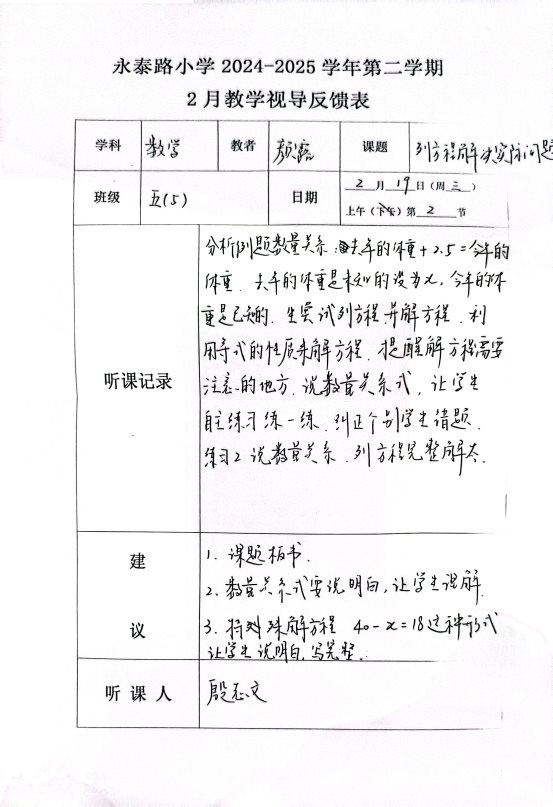 永泰路小学 2024-2025 学年第二学期
2 月教学视导反馈表
学科 数学 教者 颜露 课题 列方程解决实际问题
班级 五(5) 日期 2 月 19 日（周 三 ）
上午（下午）第 2 节
听课记录
分析例题数量关系：去年的体重+2.5=今年的
体重．去年的体重是未知的设为x，今年的体
重是已知的．生尝试列方程，并解方程．利
用等式的性质来解方程．提醒解方程需要
注意的地方．说数量关系式，让学生
自主练习练一练．纠正个别学生错题．
练习2 说数量关系．列方程完整解答．
建议
1. 课题板书．
2. 数量关系式要说明白，让学生理解
3. 特殊解方程 40-x=18这种形式
让学生说明白，写完整．
听课人 殷志文